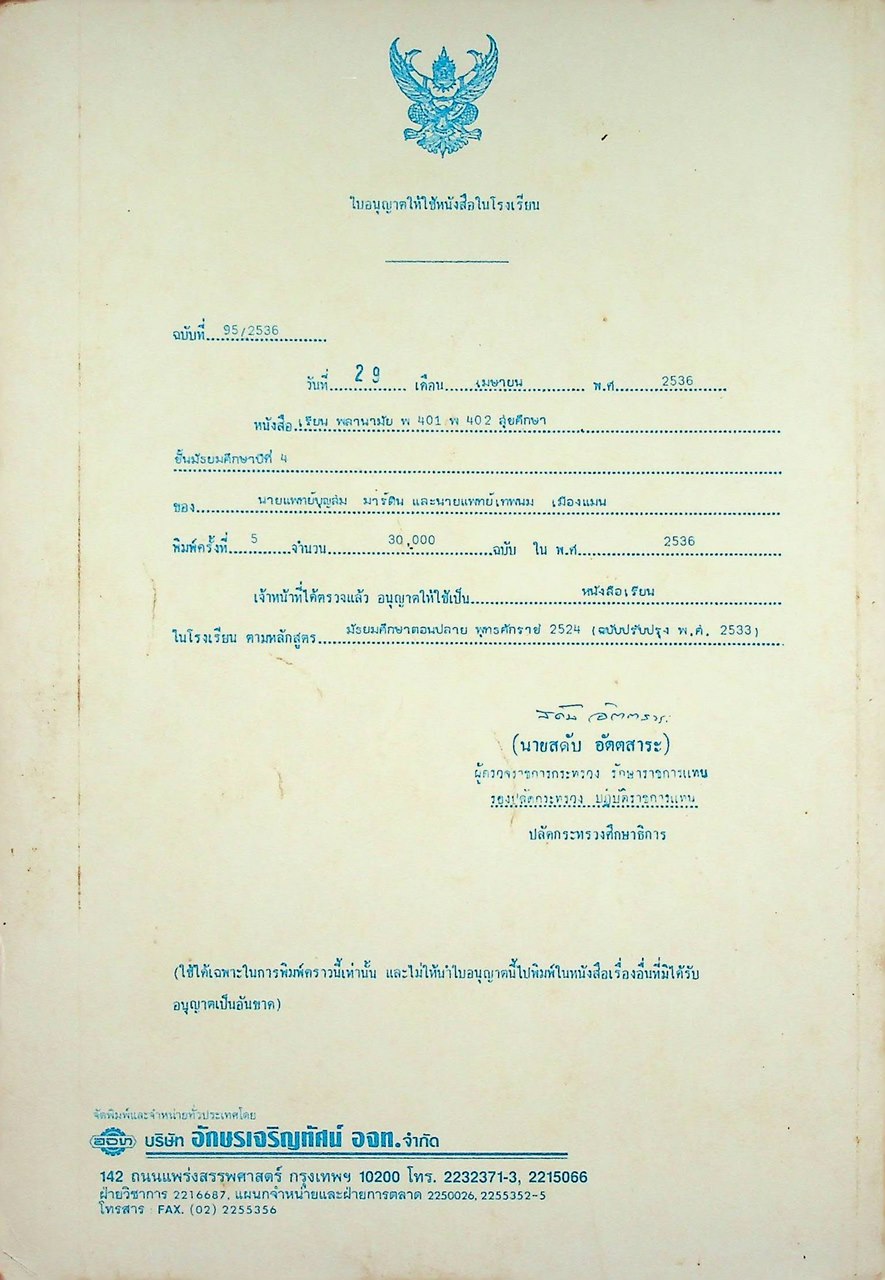 ใบอนุญาตให้ใช้หนังสือในโรงเรียน
ฉบับที่ 95/2536
วันที่ 29 เดือน เมษายน พ.ศ. 2536
หนังสือ เรียน พลานามัย พ 401 พ 402 สุขศึกษา
ชั้นมัธยมศึกษาปีที่ 4
ของ นายแพทย์บุญสม มาร์ติน และนายแพทย์เทพนม เมืองแมน
พิมพ์ครั้งที่ 5 จำนวน 30,000 ฉบับ ใน พ.ศ. 2536
เจ้าหน้าที่ได้ตรวจแล้ว อนุญาตให้ใช้เป็น หนังสือเรียน
ในโรงเรียน ตามหลักสูตร มัธยมศึกษาตอนปลาย พุทธศักราช 2524 (ฉบับปรับปรุง พ.ศ. 2533)
สดับ อัตตสาระ
(นายสดับ อัตตสาระ)
ผู้ตรวจราชการกระทรวง รักษาราชการแทน
รองปลัดกระทรวง ปฏิบัติราชการแทน
ปลัดกระทรวงศึกษาธิการ
(ใช้ได้เฉพาะในการพิมพ์คราวนี้เท่านั้น และไม่ให้นำใบอนุญาตนี้ไปพิมพ์ในหนังสือเรื่องอื่นที่มิได้รับ
อนุญาตเป็นอันขาด)
จัดพิมพ์และจำหน่ายทั่วประเทศโดย
อจท บริษัท อักษรเจริญทัศน์ อจท. จำกัด
142 ถนนแพร่งสรรพศาสตร์ กรุงเทพฯ 10200 โทร. 2232371-3, 2215066
ฝ่ายวิชาการ 2216687, แผนกจำหน่ายและฝ่ายการตลาด 2250026, 2255352-5
โทรสาร FAX. (02) 2255356